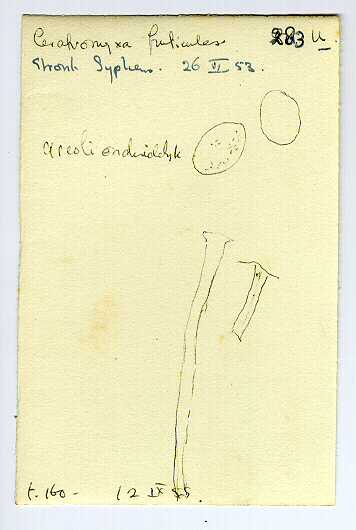 Ceratiomyxa fruticulosa 283 U
Stronk Syphens. 26 VI 53.
areoli onduidelijk
t. 160- 12 IX 55.